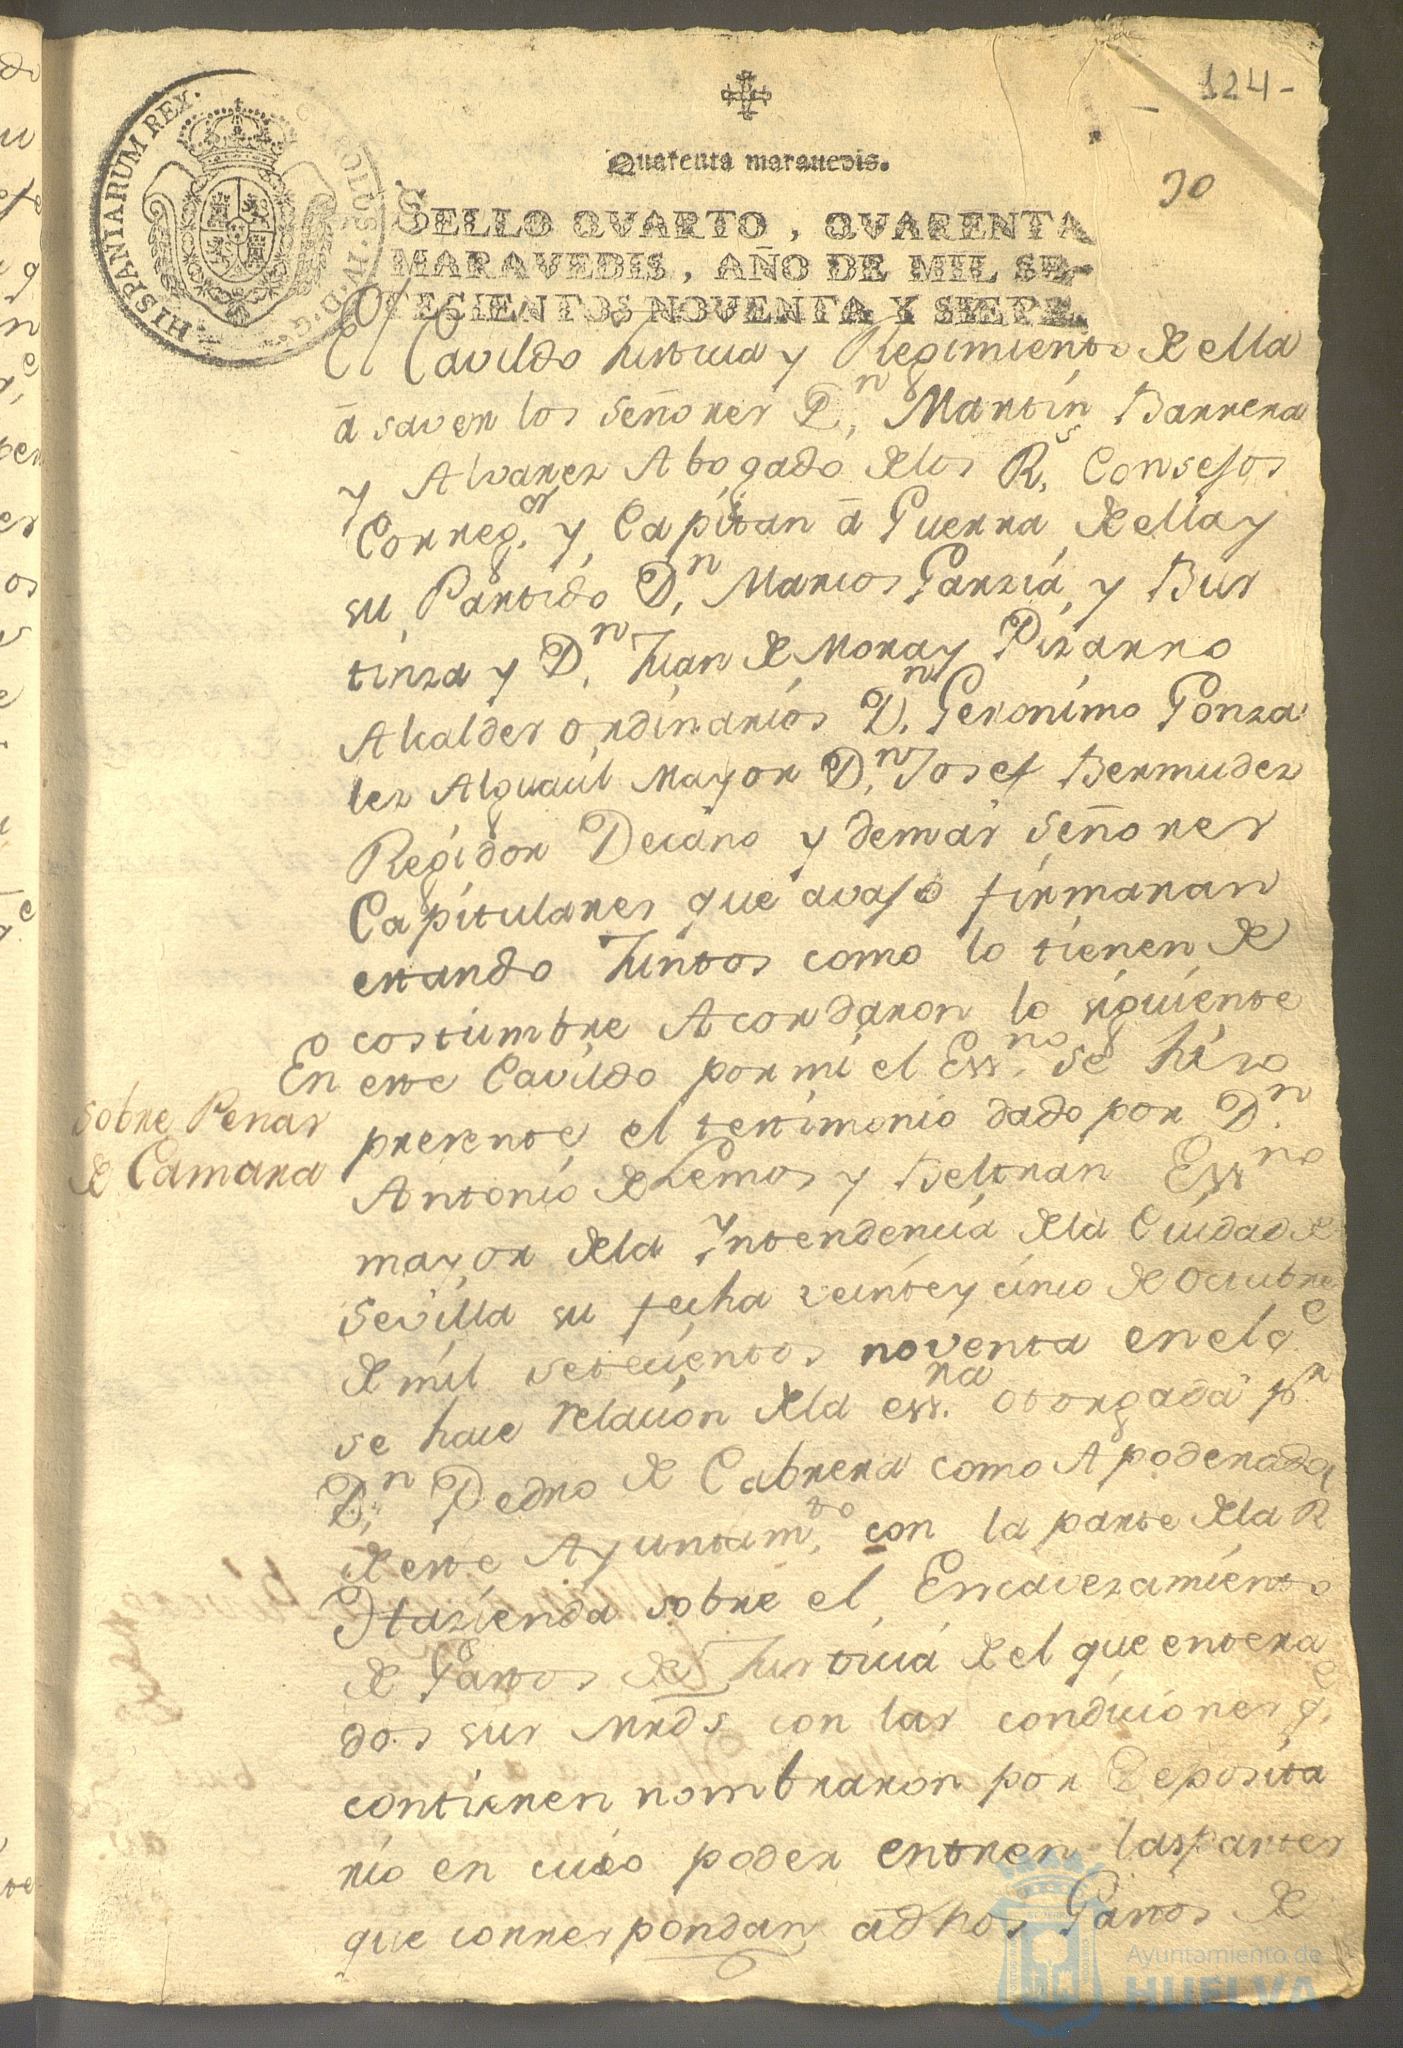 124-
Quarenta maravedis.
30
HISPANIARUM REX. CAROLUS. IV. D. G.
SELLO QVARTO, QVARENTA
MARAVEDIS, AÑO DE MIL SE-
TECIENTOS NOVENTA Y SIETE.
El Cavildo Justicia y Regimiento de ella
â saver los señores Dn. Martin Barrera
y Alvarez Abogado delos Rs. Consejos
Correg.or y, Capitan â Guerra de ella y
su Partido Dn. Marcos Garzia, y Bus
tinza y Dn. Juan de Mora y Pizarro
Alcaldes ordinarios Dn. Geronimo Gonza
lez Alguacil Mayor Dn. Josef Bermudez
Regidor Decano y demas señores
Capitulares que avajo firmaran
estando Juntos como lo tienen de
costumbre Acordaron lo siguiente
En este Cavildo por mi el Essno. se hizo
sobre Penas
de Camara
presente, el testimonio dado por Dn.
Antonio de Lemos y Beltran Essno
mayor dela Yntendencia dela Ciudad de
Sevilla su fecha veinte y cinco de Octubre
de mil setecientos noventa en el qe
se hace relacion dela essna. otorgada pr.
Dn. Pedro de Cabrera como Apoderado
de este Ayuntamto. con la parte dela R
Hazienda sobre el, Encavezamiento
de Gastos de Justicia de el que entera
dos sus Mrds con las condiciones qe.
contienen nombraron por Deposita
rio en cuio poder entren las partes
que correspondan adhos Gastos de
Ayuntamiento de
HUELVA